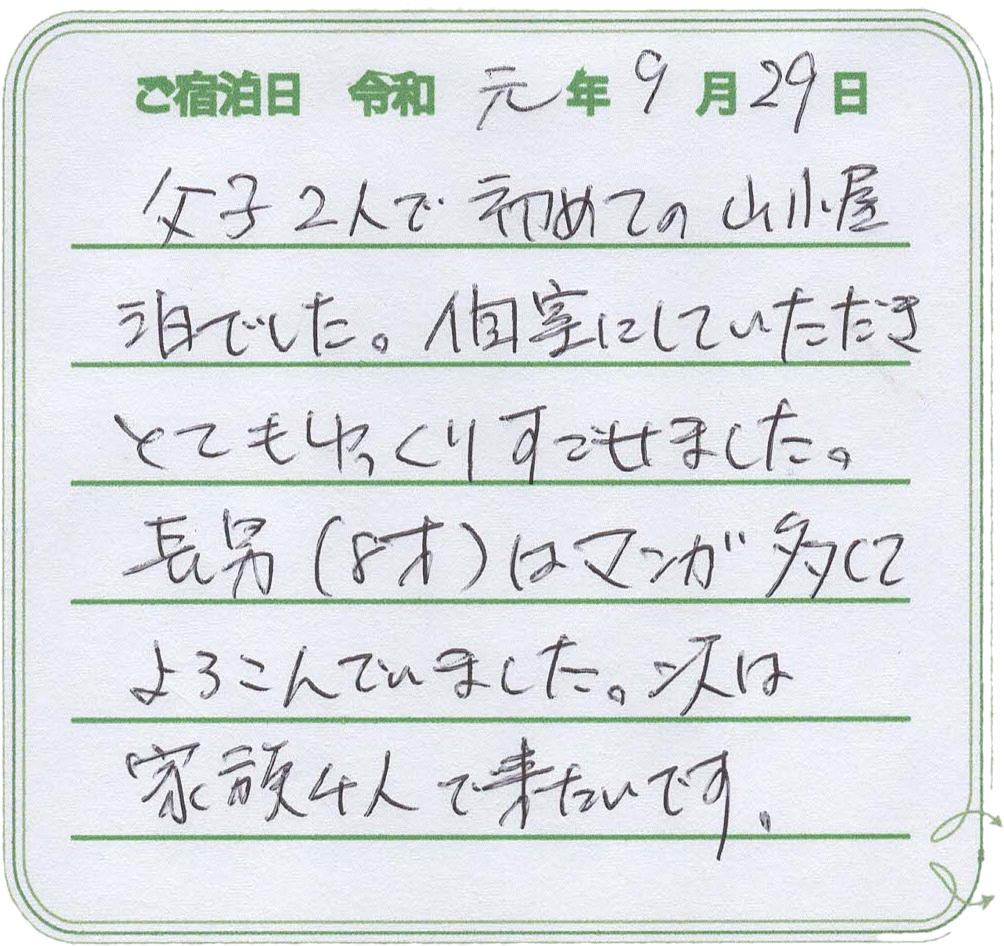 ご宿泊日 令和 元年 9月29日
父子2人で初めての山小屋
泊でした。個室にしていただき
とてもゆっくりすごせました。
長男(8才)はマンガ多くて
よろこんでいました。次は
家族4人で来たいです。